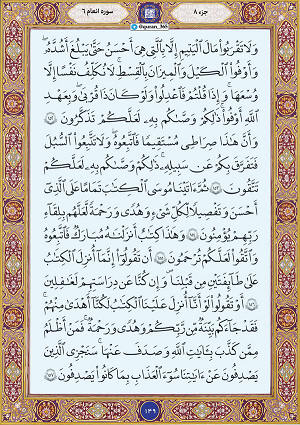 جزء ۸
@quran_365
سوره انعام ۶
وَلَا تَقْرَبُوا۟ مَالَ ٱلْيَتِيمِ إِلَّا بِٱلَّتِي هِيَ أَحْسَنُ حَتَّىٰ يَبْلُغَ أَشُدَّهُۥ ۖ
وَأَوْفُوا۟ ٱلْكَيْلَ وَٱلْمِيزَانَ بِٱلْقِسْطِ ۖ لَا نُكَلِّفُ نَفْسًا إِلَّا
وُسْعَهَا ۖ وَإِذَا قُلْتُمْ فَٱعْدِلُوا۟ وَلَوْ كَانَ ذَا قُرْبَىٰ ۖ وَبِعَهْدِ
ٱللَّهِ أَوْفُوا۟ ۚ ذَٰلِكُمْ وَصَّىٰكُم بِهِۦ لَعَلَّكُمْ تَذَكَّرُونَ ﴿١٥٢﴾
وَأَنَّ هَٰذَا صِرَٰطِي مُسْتَقِيمًا فَٱتَّبِعُوهُ ۖ وَلَا تَتَّبِعُوا۟ ٱلسُّبُلَ
فَتَفَرَّقَ بِكُمْ عَن سَبِيلِهِۦ ۚ ذَٰلِكُمْ وَصَّىٰكُم بِهِۦ لَعَلَّكُمْ
تَتَّقُونَ ﴿١٥٣﴾ ثُمَّ ءَاتَيْنَا مُوسَى ٱلْكِتَٰبَ تَمَامًا عَلَى ٱلَّذِي
أَحْسَنَ وَتَفْصِيلًا لِّكُلِّ شَيْءٍ وَهُدًى وَرَحْمَةً لَّعَلَّهُم بِلِقَآءِ
رَبِّهِمْ يُؤْمِنُونَ ﴿١٥٤﴾ وَهَٰذَا كِتَٰبٌ أَنزَلْنَٰهُ مُبَارَكٌ فَٱتَّبِعُوهُ
وَٱتَّقُوا۟ لَعَلَّكُمْ تُرْحَمُونَ ﴿١٥٥﴾ أَن تَقُولُوٓا۟ إِنَّمَآ أُنزِلَ ٱلْكِتَٰبُ
عَلَىٰ طَآئِفَتَيْنِ مِن قَبْلِنَا وَإِن كُنَّا عَن دِرَاسَتِهِمْ لَغَٰفِلِينَ
﴿١٥٦﴾ أَوْ تَقُولُوا۟ لَوْ أَنَّآ أُنزِلَ عَلَيْنَا ٱلْكِتَٰبُ لَكُنَّآ أَهْدَىٰ مِنْهُمْ ۚ
فَقَدْ جَآءَكُم بَيِّنَةٌ مِّن رَّبِّكُمْ وَهُدًى وَرَحْمَةٌ ۚ فَمَنْ أَظْلَمُ
مِمَّن كَذَّبَ بِـَٔايَٰتِ ٱللَّهِ وَصَدَفَ عَنْهَا ۗ سَنَجْزِي ٱلَّذِينَ
يَصْدِفُونَ عَنْ ءَايَٰتِنَا سُوٓءَ ٱلْعَذَابِ بِمَا كَانُوا۟ يَصْدِفُونَ ﴿١٥٧﴾
۱۴۹